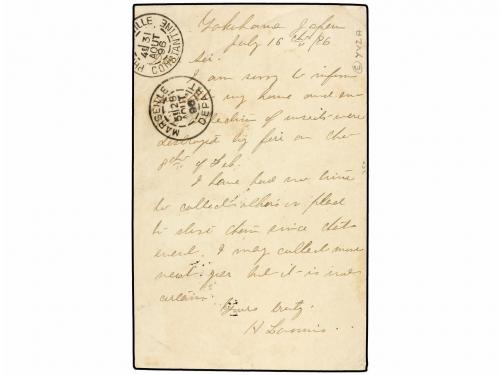 Yokohama Japan
July 16th / 96
Sir.
I am sorry to inform
my home and en
collection of insects were
destroyed by fire on the
8th of Feb.
I have had no time
to collect others or place
to store them since that
event. I may collect more
next year but it is un
certain.
Yours truly.
H Loomis.
PHILIPPEVILLE
4E 31
AOUT
96
CONSTANTINE
MARSEILLE
5E 28
AOUT
96
DEPART
YVZA